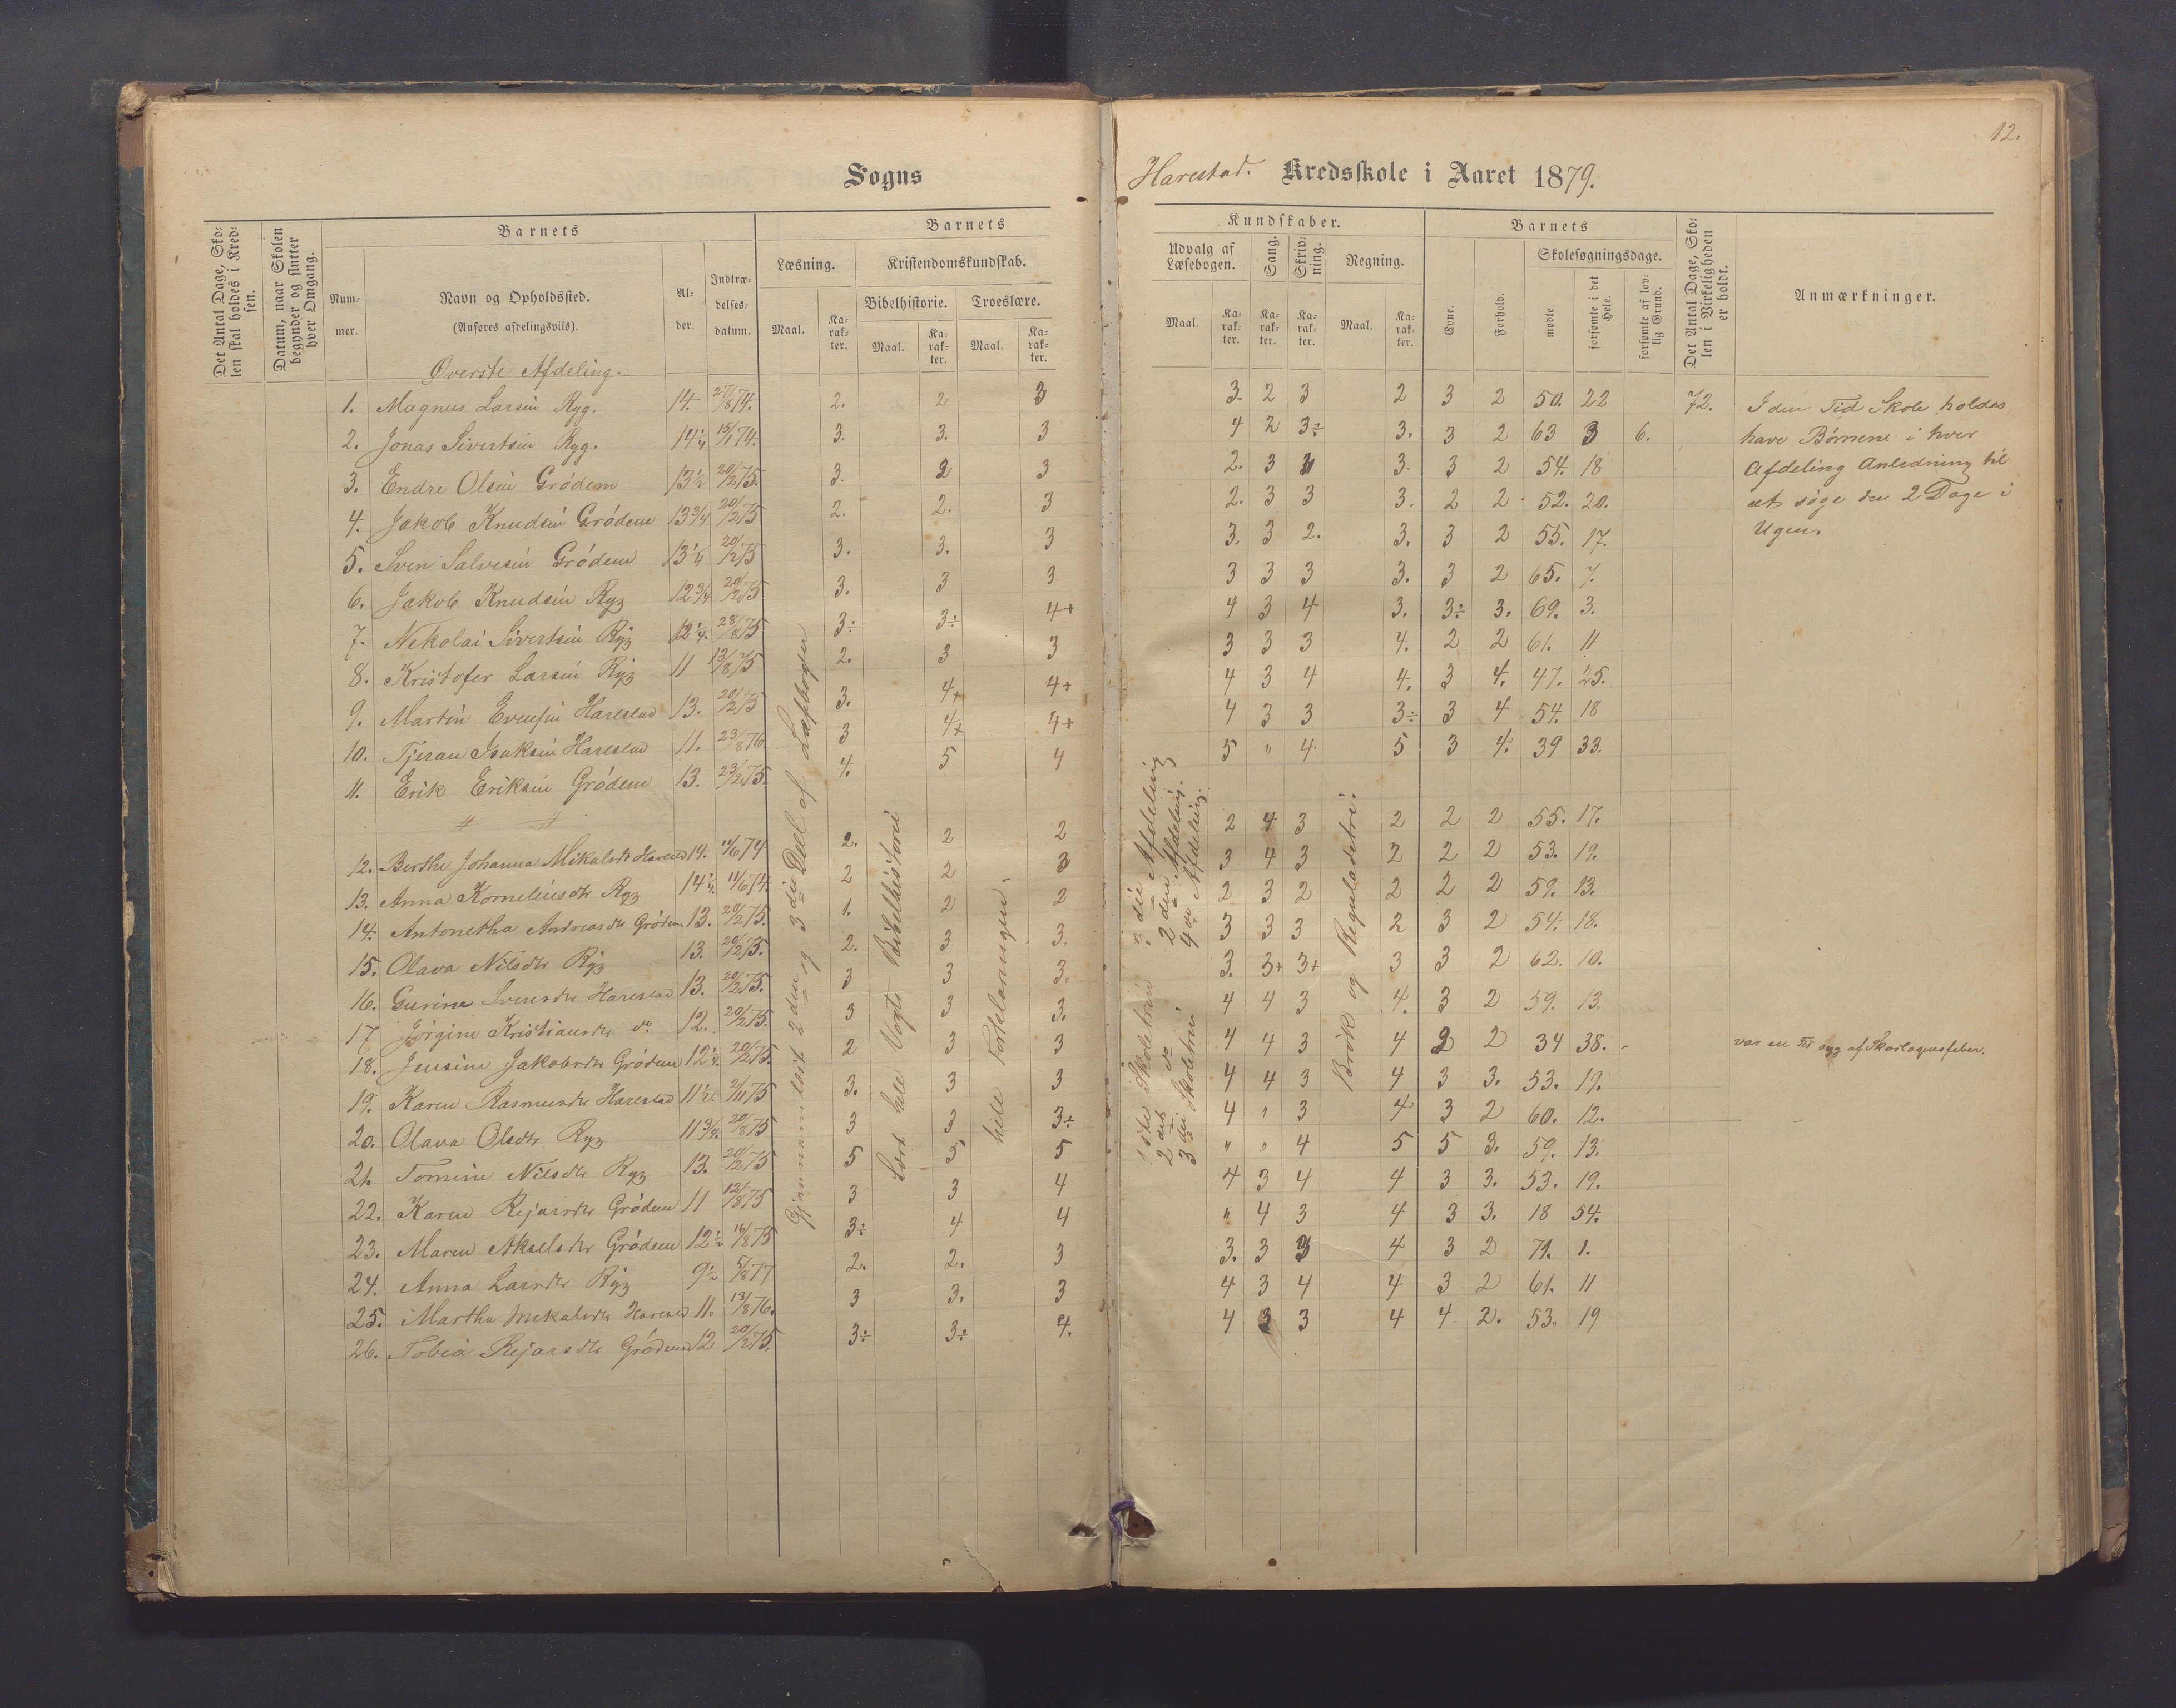 12.
Sogns
Harestad. Kredsskole i Aaret 1879.
Det Antal Dage, Sko-
len skal holdes i Kred-
sen.
Datum, naar Skolen
begynder og slutter
hver Omgang.
Barnets
Num-
mer.
Navn og Opholdssted.
(Anføres afdelingsviis).
Al-
der.
Indtræ-
delses-
datum.
Barnets
Læsning.
Kristendomskundskab.
Bibelhistorie. Troeslære.
Maal. Ka-
rak-
ter.
Maal. Ka-
rak-
ter.
Maal. Ka-
rak-
ter.
Kundskaber.
Udvalg af
Læsebogen.
Sang.
Skriv-
ning.
Regning.
Maal. Ka-
rak-
ter.
Ka-
rak-
ter.
Ka-
rak-
ter.
Maal. Ka-
rak-
ter.
Barnets
Evne.
Forhold.
Skolesøgningsdage.
mødte.
forsømte i det
Hele.
forsømte af lov-
lig Grund.
Det Antal Dage, Sko-
len i Virkeligheden
er holdt.
Anmærkninger.
Øverste Afdeling.
1. Magnus Larsin Ryg. 14. 27/8 74. 2. 2 3 3. 2 3 2 3 2 50. 22 72.
2. Jonas Sivertsin Ryg. 14 1/4 15/1 74. 3. 3. 3 4 2 3÷ 3. 3 2 63 3 6.
3. Endre Olsin Grödem 13 1/2 20/2 75. 3. 2 3 2. 3 3 3. 3 2 54. 18
4. Jakob Knudsin Grödem 13 3/4 20/2 75 2. 2. 3 2. 3 3 3. 2 2 52. 20.
5. Sven Salvesin Grödem 13 1/4 20/2 75 3. 3. 3 3. 3 2. 3. 3 2 55. 17.
6. Jakob Knudsin Ryg 12 3/4 20/2 75 3. 3 3 3 3 3 3. 3 2 65. 7.
7. Nikolai Sivertsin Ryg 12 1/4. 28/8 75 3÷ 3÷ 4+ 4 3 4 3. 3÷ 3. 69. 3.
8. Kristofer Larsin Ryg 11 13/8 75 2. 3 3 3 3 3 4. 2 2 61. 11
9. Martin Evensin Harestad 13. 20/2 75 3. 4+ 4+ 4 3 4 4. 3 4. 47. 25.
10. Tjeran Isaksin Harestad 11. 23/8 76. 3 4+ 4+ 4 3 3 3÷ 3 4 54. 18
11. Erik Eriksin Grödem 13. 23/2 75. 4. 5 4 5 " 4 5 3 4. 39 33.
12. Berthe Johanna Mikalsdtr Harestad 14. 11/6 74 2. 2 2 2 4 3 2 2 2 55. 17.
13. Anna Korneliusdtr Ryg 14 1/4. 11/6 74. 2 2 3 3 4 3 2 2 2 53. 19.
14. Antonetha Andreasdtr Grödem 13. 20/2 75. 1. 2 2 2 3 2 2 2 2 59. 13.
15. Olava Nilsdtr Ryg 13. 20/2 75. 2. 3 3. 3 3 3 2 3 2 54. 18.
16. Gurine Svensdtr Harestad 13. 20/2 75. 3 3 3. 3. 3+ 3+ 3 3 2 62. 10.
17 Jörgine Kristiansdtr do 12. 20/2 75. 3 3 3. 4 4 3 4. 3 2 59. 13.
18. Jensine Jakobsdtr Grödem 12 1/4. 20/2 75. 2 3 3 4 4 3 4 2 2 34 38.
19. Karen Rasmusdtr Harestad 11 1/2. 2/11 75 3. 3 3 4 4 3 4 3 3. 53. 19.
20. Olava Olsdtr Ryg 11 3/4. 20/8 75 3 3 3÷ 4 " 3 4 3 2 60. 12.
21. Tomine Nilsdtr Ryg 13. 20/2 75 5 5 5 " " 4 5 5 3. 59. 13.
22. Karen Rejarsdtr Grödem 11 12/8 75 3 3 4 4 3 4 4 3 3. 53. 19.
23. Maren Akselsdtr Grödem 12 1/2 16/8 75 3÷ 4 4 " 4 3 4 3 3. 18 54.
24. Anna Larsdtr Ryg 9 1/2 5/8 77 2. 2. 3 3. 3 3 4 3 2 71. 1.
25. Martha Mekalsdtr Harestad 11. 13/8 76. 3 3. 3 4 3 4 4 3 2 61. 11
26. Tobia Rejarsdtr Grödem 12 20/2 75. 3÷ 3÷ 4. 4 3 3 4 4 2. 53. 19
Gjennemlæst 2den og 3die Deel af Læsebogen
Lært hele Vogts Bibelhistorie
hele Forklaringen.
1ste Skoletrin 3die Afdeling
2det do 2den Afdeling.
3die Skoletrin 4de Afdeling.
Brök og Reguladetri.
I den Tid Skole holdes
have Börnene i hver
Afdeling Anledning til
at söge den 2 Dage i
Ugen.
var en Tid syg af Skarlagensfeber.